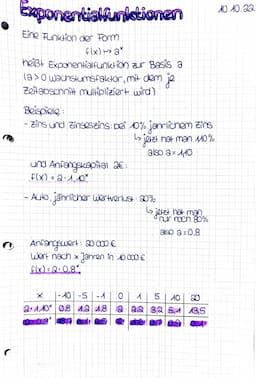 Exponentialfunktionen 10.10.22
Eine Funktion der Form
f(x) ↦ aˣ
heißt Exponentialfunktion zur Basis a
(a>0 Wachstumsfaktor, mit dem je
Zeitabschnitt multipliziert wird)
Beispiele:
- Zins und Zinseszins: bei 10% jährlichem Zins
↳ jetzt hat man 110%
also a = 1,10
und Anfangskapital 2€:
f(x) = 2 · 1,10ˣ
- Auto, jährlicher Wertverlust: 20%
↳ jetzt hat man
nur noch 80%
also a = 0,8
Anfangswert: 20 000 €
Wert nach x Jahren in 10 000 €
f(x) = 2 · 0,8ˣ
x -10 -5 -1 0 1 5 10 20
2·1,10ˣ 0,8 1,2 1,8 2 2,2 3,2 13,5